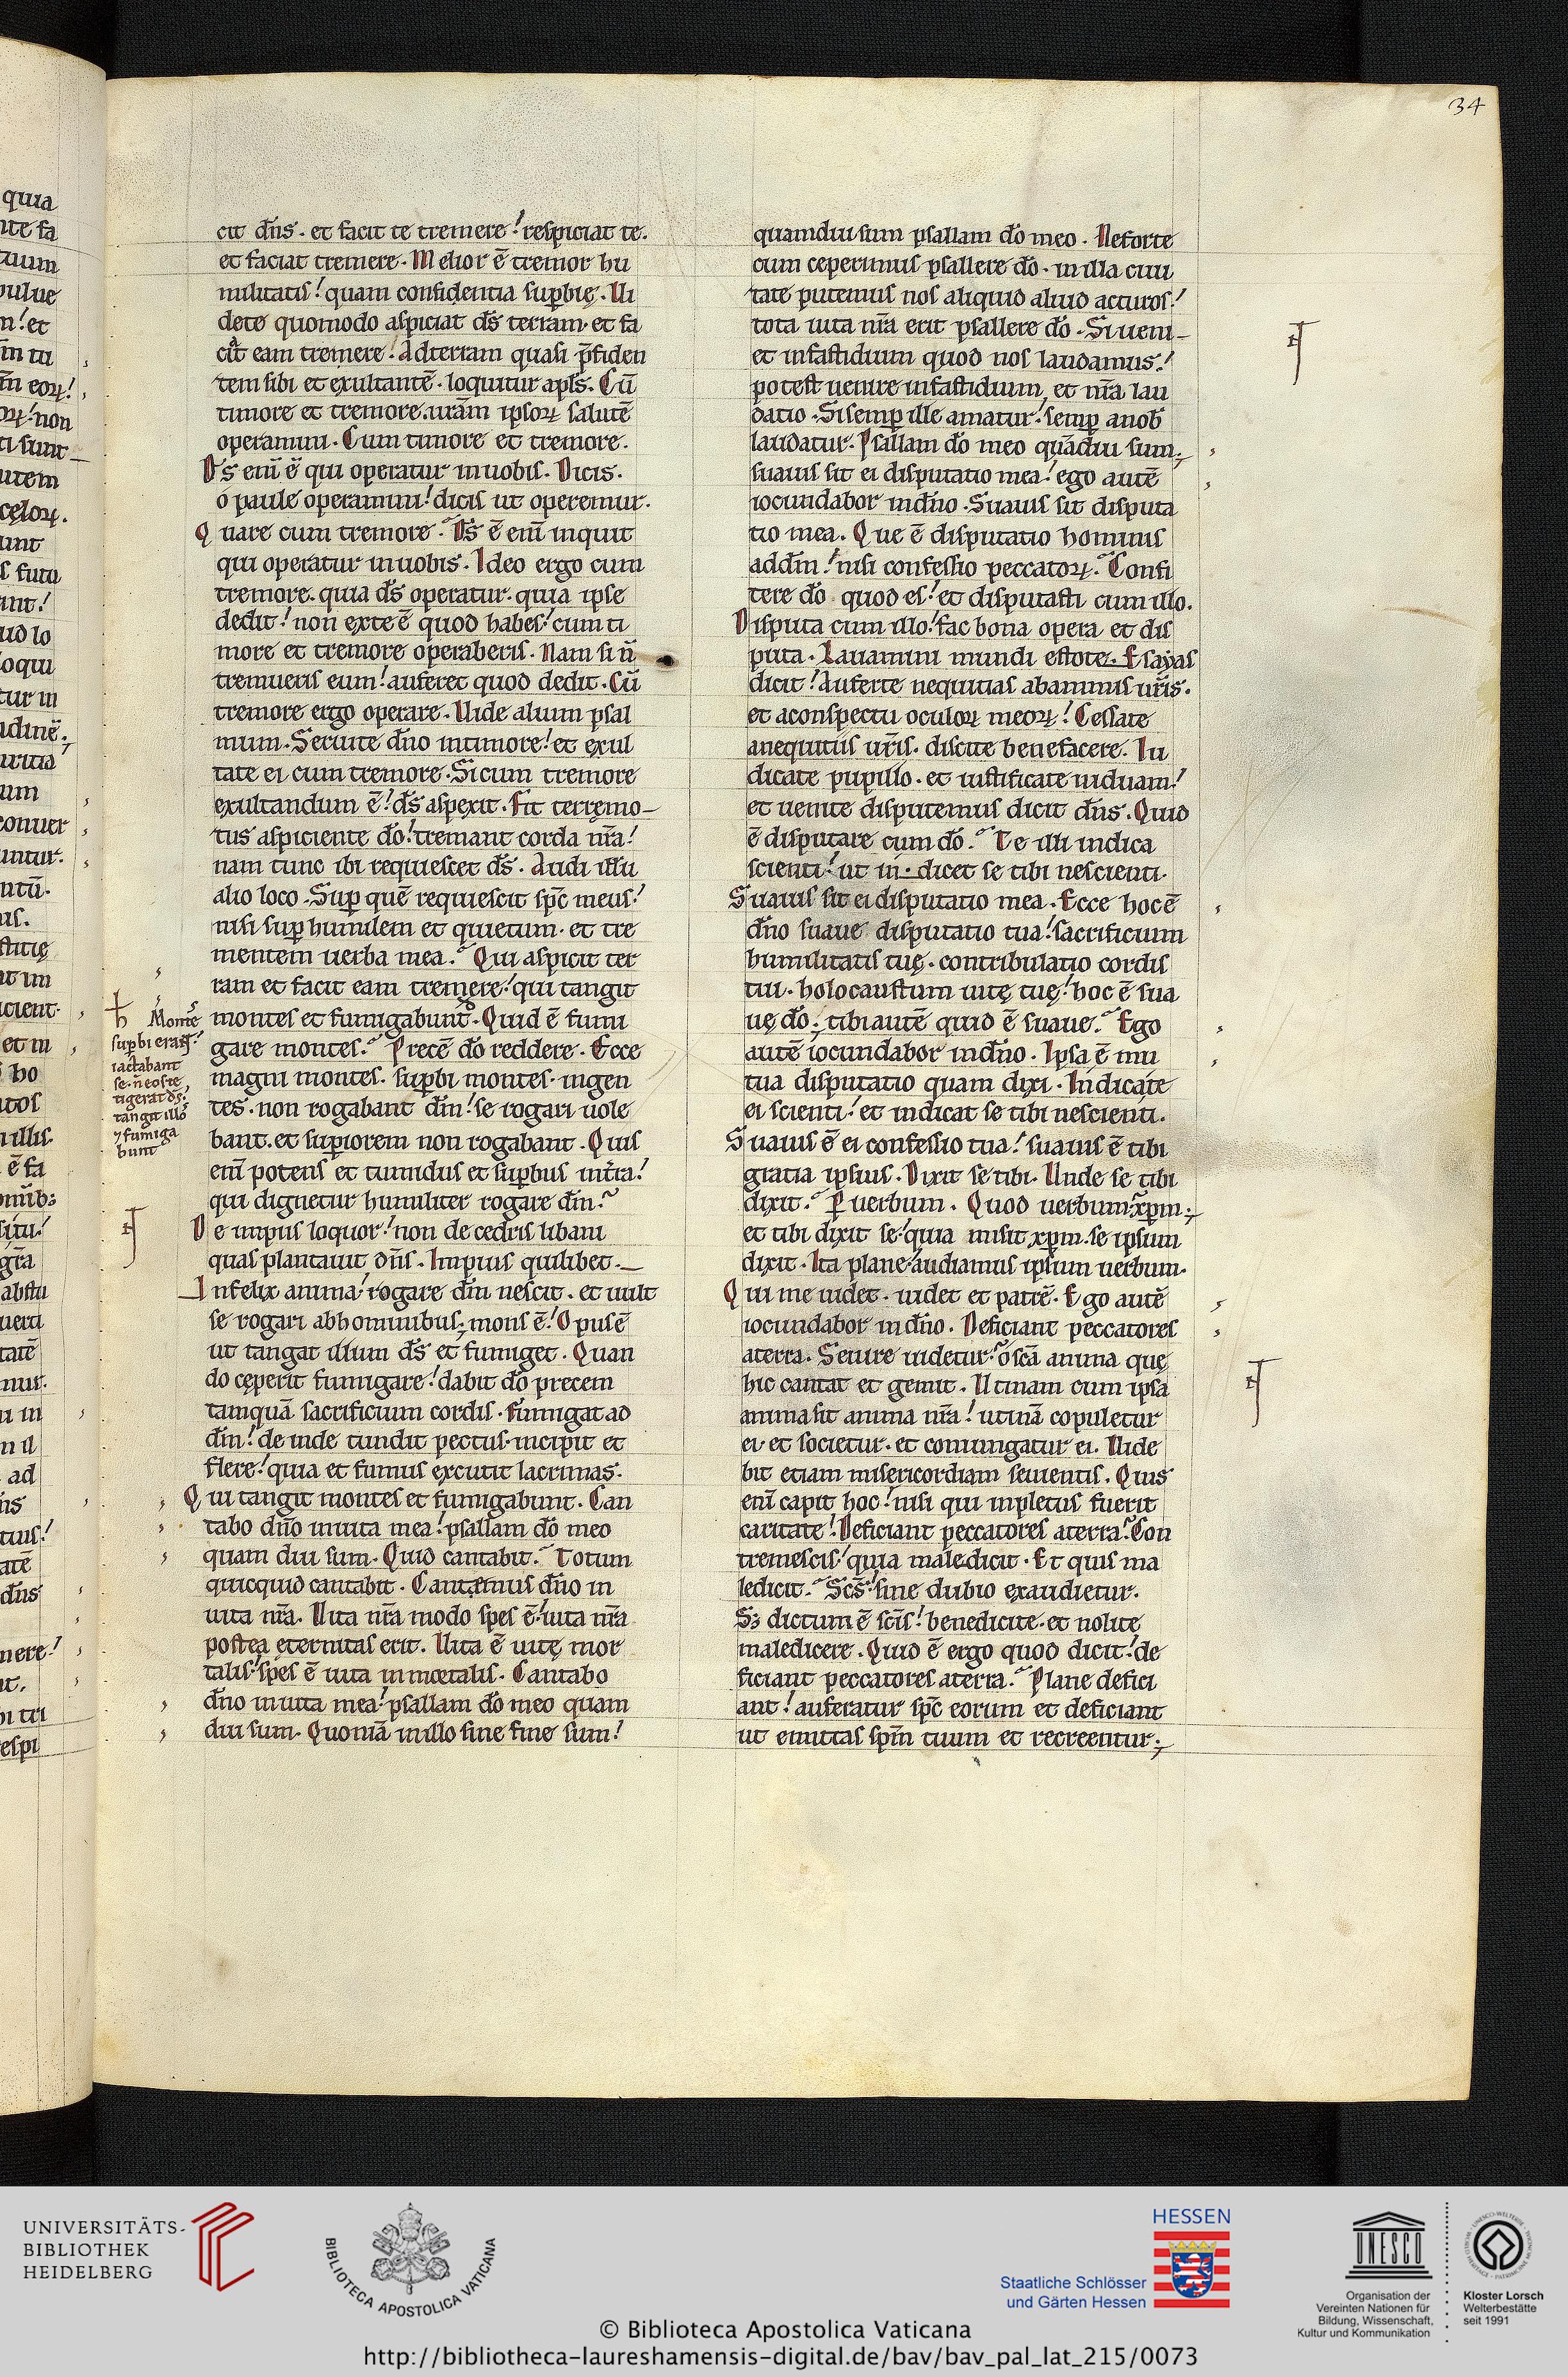 34
cit dn̅s. et facit te tremere! respiciat te.
et faciat tremere. Melior e̅ tremor hu
militatis! quam confidentia sup̲bię. Ui
dete quomodo aspiciat ds̅ terram. et fa
cit eam tremere! Ad terram quasi p̅fiden
tem sibi et exultante̅. loquitur apl̅s. Cu̅
timore et tremore. ura̅m ipsoꝝ salute̅
operamini. Cum timore et tremore.
Ds̅ eni̅ e̅ qui operatur in uobis. Dicis.
o paule operamini! dicis ut operemur.
Quare cum tremore? Ds̅ e̅ eni̅ inquit
qui operatur in uobis. Ideo ergo cum
tremore. quia ds̅ operatur. quia ipse
dedit! non ex te e̅ quod habes! cum ti
more et tremore operaberis. Nam si n̅
tremueris eum! auferet quod dedit. Cu̅
tremore ergo operare. Uide alium psal
mum. Seruite dn̅o in timore! et exul
tate ei cum tremore. Si cum tremore
exultandum e̅! ds̅ aspexit. Fit terręmo
tus aspiciente do̅! tremant corda nr̅a!
nam tunc ibi requiescet ds̅. Audi illu
alio loco. Sup̲ que̅ requiescit sp̅c meus!
nisi sup̲ humilem et quietum. et tre
mentem uerba mea? Qui aspicit ter
ram et facit eam tremere! qui tangit
montes et fumigabunt. Quid e̅ fumi
gare montes? Prece̅ do̅ reddere. Ecce
magni montes. sup̲bi montes. ingen
tes. non rogabant dm̅! se rogari uole
bant. et sup̲iorem non rogabant. Quis
eni̅ potens et tumidus et sup̲bus in tr̅a!
qui dignetur humiliter rogare dm̅?
De impiis loquor! non de cedris libani
quas plantauit dn̅s. Impius quilibet.
Infelix anima! rogare dm̅ nescit. et uult
se rogari ab hominibus; mons e̅! Opus e̅
ut tangat illum ds̅ et fumiget. Quan
do cęperit fumigare! dabit do̅ precem
tamqua̅ sacrificium cordis. Fumigat ad
dm̅! deinde tundit pectus. incipit et
flere! quia et fumus excutit lacrimas.
Qui tangit montes et fumigabunt. Can
tabo dn̅o in uita mea! psallam do̅ meo
quam diu sum. Quid cantabit? Totum
quicquid cantabit. Cantemus dn̅o in
uita nr̅a. Uita nr̅a modo spes e̅! uita nr̅a
postea ęternitas erit. Uita e̅ uitę mor
talis! spes e̅ uita inmortalis. Cantabo
dn̅o in uita mea! psallam do̅ meo quam
diu sum. Quonia̅ in illo sine fine sum!
Monte̅s
sup̲bi erant.
iactabant
se. n̅ eos te
tigerat ds̅.
tangit illos
⁊ fumiga
bunt
quamdiu sum psallam do̅ meo. Ne forte
cum ceperimus psallere do̅. in illa ciui
tate putemus nos aliquid aliud acturos!
tota uita nr̅a erit psallere do̅. Si ueni
et in fastidium quod nos laudamus!
potest uenire in fastidium, et nr̅a lau
datio. Si semp̲ ille amatur! semp̲ a nob̅
laudatur. Psallam do̅ meo qua̅diu sum;
suauis sit ei disputatio mea! ego aute̅
iocundabor in dn̅o. Suauis sit disputa
tio mea. Que e̅ disputatio hominis
ad dm̅! nisi confessio peccatoꝝ? Confi
tere do̅ quod es! et disputasti cum illo.
Disputa cum illo! fac bona opera et dis
puta. Lauamini mundi estote. Esayas
dicit! Auferte nequitias ab animis ur̅is.
et a conspectu oculoꝝ meoꝝ! Cessate
a nequitiis ur̅is. discite benefacere. Iu
dicate pupillo. et iustificate uiduam!
et uenite disputemus dicit dn̅s. Quid
e̅ disputare cum do̅? Te illi indica
scienti! ut in. dicet se tibi nescienti.
Suauis sit ei disputatio mea. Ecce hoc e̅
dn̅o suaue disputatio tua! sacrificium
humilitatis tuę. contribulatio cordis
tui. holocaustum uitę tuę! hoc e̅ sua
uę do̅; tibi aute̅ quid e̅ suaue? Ego
aute̅ iocundabor in dn̅o. Ipsa e̅ mu
tua disputatio quam dixi. Indicate
ei scienti! et indicat se tibi nescienti.
Suauis e̅ ei confessio tua! suauis e̅ tibi
gratia ipsius. Dixit se tibi. Unde se tibi
dixit? P̲ uerbum. Quod uerbum? xp̅m;
et tibi dixit se! quia misit xp̅m. se ipsum
dixit. Ita plane! audiamus ipsum uerbum.
Qui me uidet. uidet et patre̅. Ego aute̅
iocundabor in dn̅o. Deficiant peccatores
a terra. Seuire uidetur? o sc̅a anima quę
hic cantat et gemit. Utinam cum ipsa
anima sit anima nr̅a! utina̅ copuletur
ei. et societur. et coniungatur ei. Uide
bit etiam misericordiam seuientis. Quis
eni̅ capit hoc! nisi qui inpletus fuerit
caritate! Deficiant peccatores a terra? Con
tremescis! quia maledicit. Et quis ma
ledicit? Sc̅s! sine dubio exaudietur.
Sꝫ dictum e̅ sc̅is! benedicite. et nolite
maledicere. Quid e̅ ergo quod dicit! de
ficiant peccatores a terra? Plane defici
ant! auferatur sp̅c eorum et deficiant
ut emittas sp̅m tuum et recreentur;
UNIVERSITÄTS-
BIBLIOTHEK
HEIDELBERG
BIBLIOTECA APOSTOLICA VATICANA
HESSEN
Staatliche Schlösser
und Gärten Hessen
UNESCO
Organisation der
Vereinten Nationen für
Bildung, Wissenschaft,
Kultur und Kommunikation
Kloster Lorsch
Welterbestätte
seit 1991
© Biblioteca Apostolica Vaticana
http://bibliotheca-laureshamensis-digital.de/bav/bav_pal_lat_215/0073